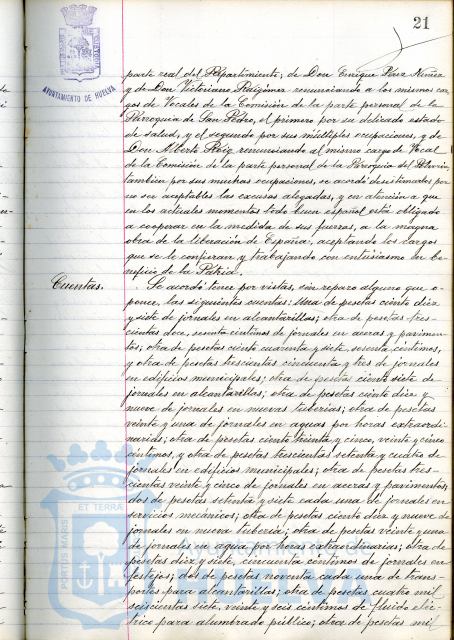 21
AYUNTAMIENTO DE HUELVA
parte real del Repartimiento; de Don Enrique Pérez Núñez
y de Don Victoriano Ruigómez renunciando a los mismos car-
gos de Vocales de la Comisión de la parte personal de la
Parroquia de San Pedro, el primero por su delicado estado
de salud, y el segundo por sus múltiples ocupaciones, y de
Don Alberto Roig renunciando al mismo cargo de Vocal
de la Comisión de la parte personal de la Parroquia del
tambien por sus muchas ocupaciones, se acordó desestimarlas por
no ser aceptables las excusas alegadas, y en atención a que
en los actuales momentos todo buen español está obligado
a cooperar en la medida de sus fuerzas, a la magna
obra de la liberación de España, aceptando los cargos
que se le confieran y trabajando con entusiasmo en be-
neficio de la Patria.
Cuentas.
Se acordó tener por vistas, sin reparo alguno que o-
poner, las siguientes cuentas: Una de pesetas ciento diez
y siete de jornales en alcantarillas; otra de pesetas tres-
cientas doce, sesenta céntimos de jornales en aceras y pavimen-
tos; otra de pesetas ciento cuarenta y siete, sesenta céntimos,
y otra de pesetas trescientas cincuenta y tres de jornales
en edificios municipales; otra de pesetas ciento siete de
jornales en alcantarillas; otra de pesetas ciento diez y
nueve de jornales en nuevas tuberias; otra de pesetas
veinte y una de jornales en aguas por horas extraordi-
narias; otra de pesetas ciento treinta y cinco, veinte y cinco
céntimos, y otra de pesetas trescientas setenta y cuatro de
jornales en edificios municipales; otra de pesetas tres-
cientas veinte y cinco de jornales en aceras y pavimentos;
dos de pesetas setenta y siete cada una de jornales en
servicios mecánicos; otra de pesetas ciento diez y nueve de
jornales en nueva tuberia; otra de pesetas veinte y una
de jornales en agua por horas extraordinarias; otra de
pesetas diez y siete, cincuenta céntimos de jornales en
festejos; dos de pesetas noventa cada una de trans-
portes para alcantarillas; otra de pesetas cuatro mil
seiscientas siete, veinte y seis céntimos de fluido eléc-
trico para alumbrado público; otra de pesetas mil
PORTUS MARIS ET TERRAE
Ayuntamiento de
HUELVA